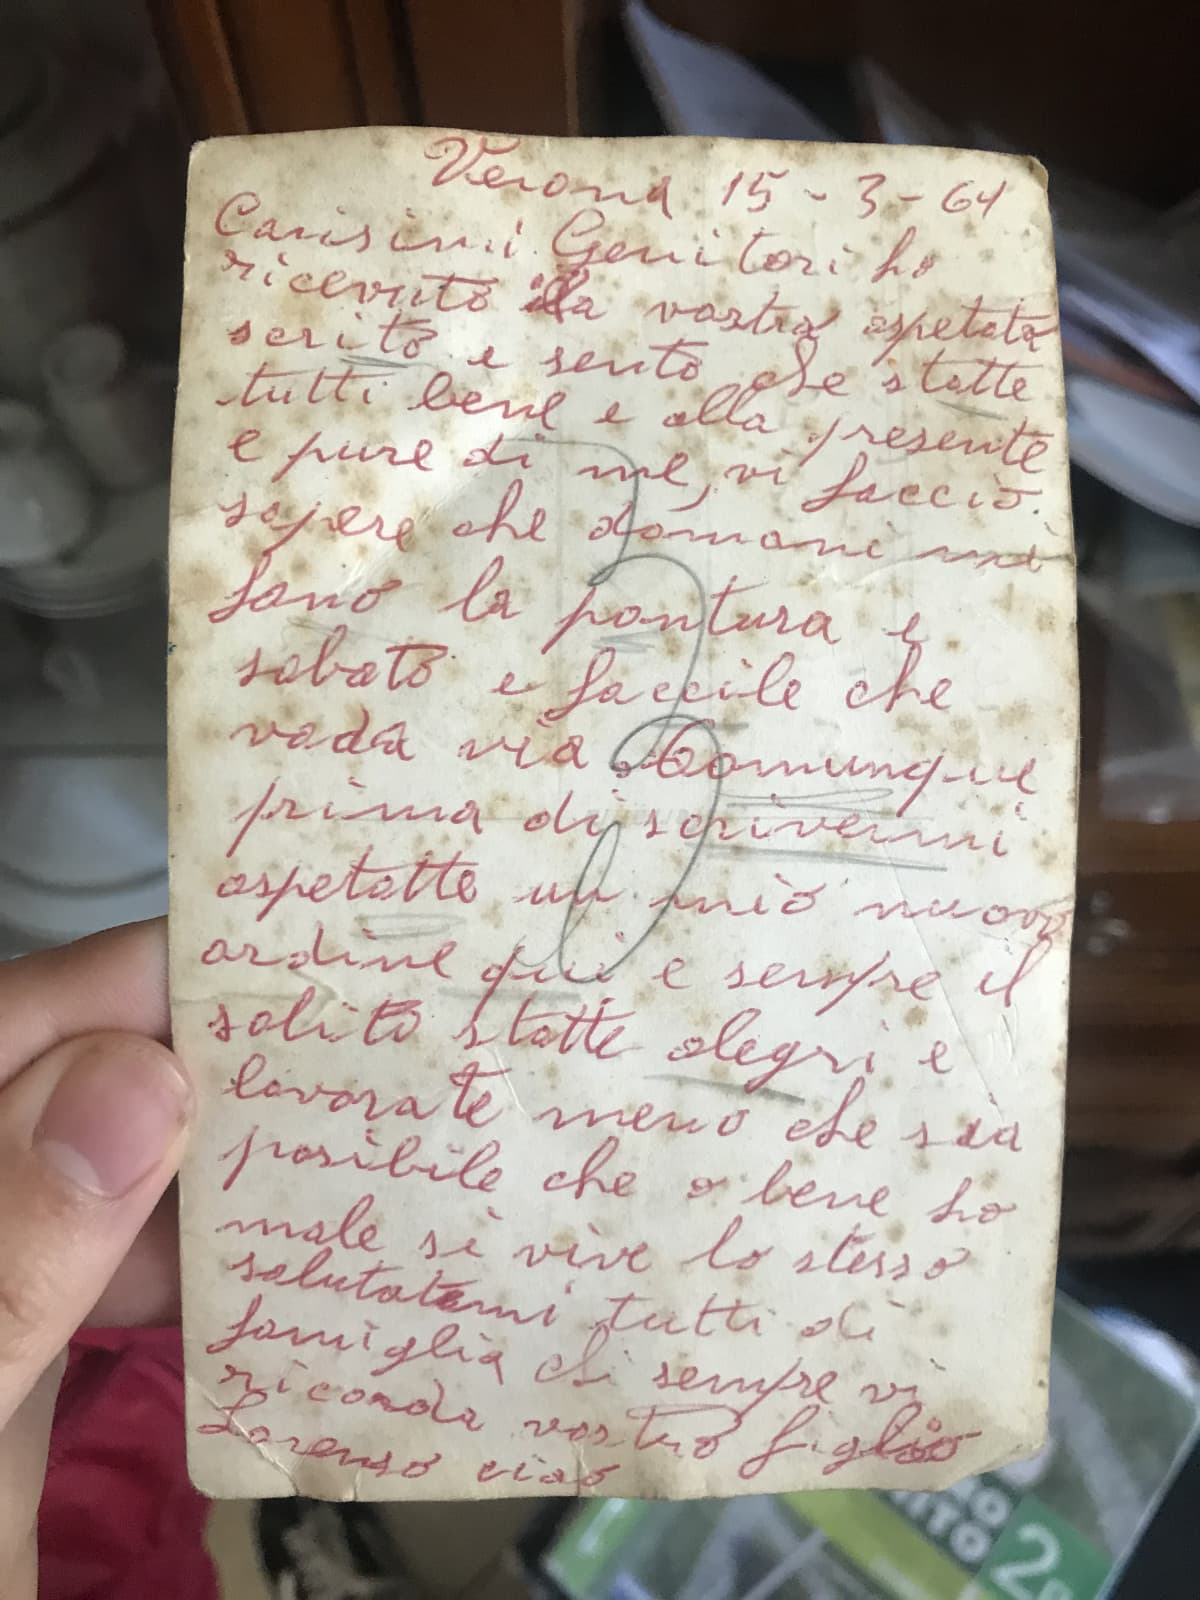 Verona 15-3-64
Carisimi Genitori ho
ricevuto la vostra aspetata
scrito e sento che statte
tutti bene e alla presente
e pure di me, vi faccio
sapere che domani mi
fano la pontura e
sabato e faccile che
vada via. Comunque
prima di scrivermi
aspetatte un mio nuovo
ordine qui e sempre il
solito statte alegri e
lavorate meno che sia
posibile che o bene ho
male si vive lo stesso
salutatemi tutti di
famiglia chi sempre vi
ricorda vostro figlio
Lorenso ciao
2